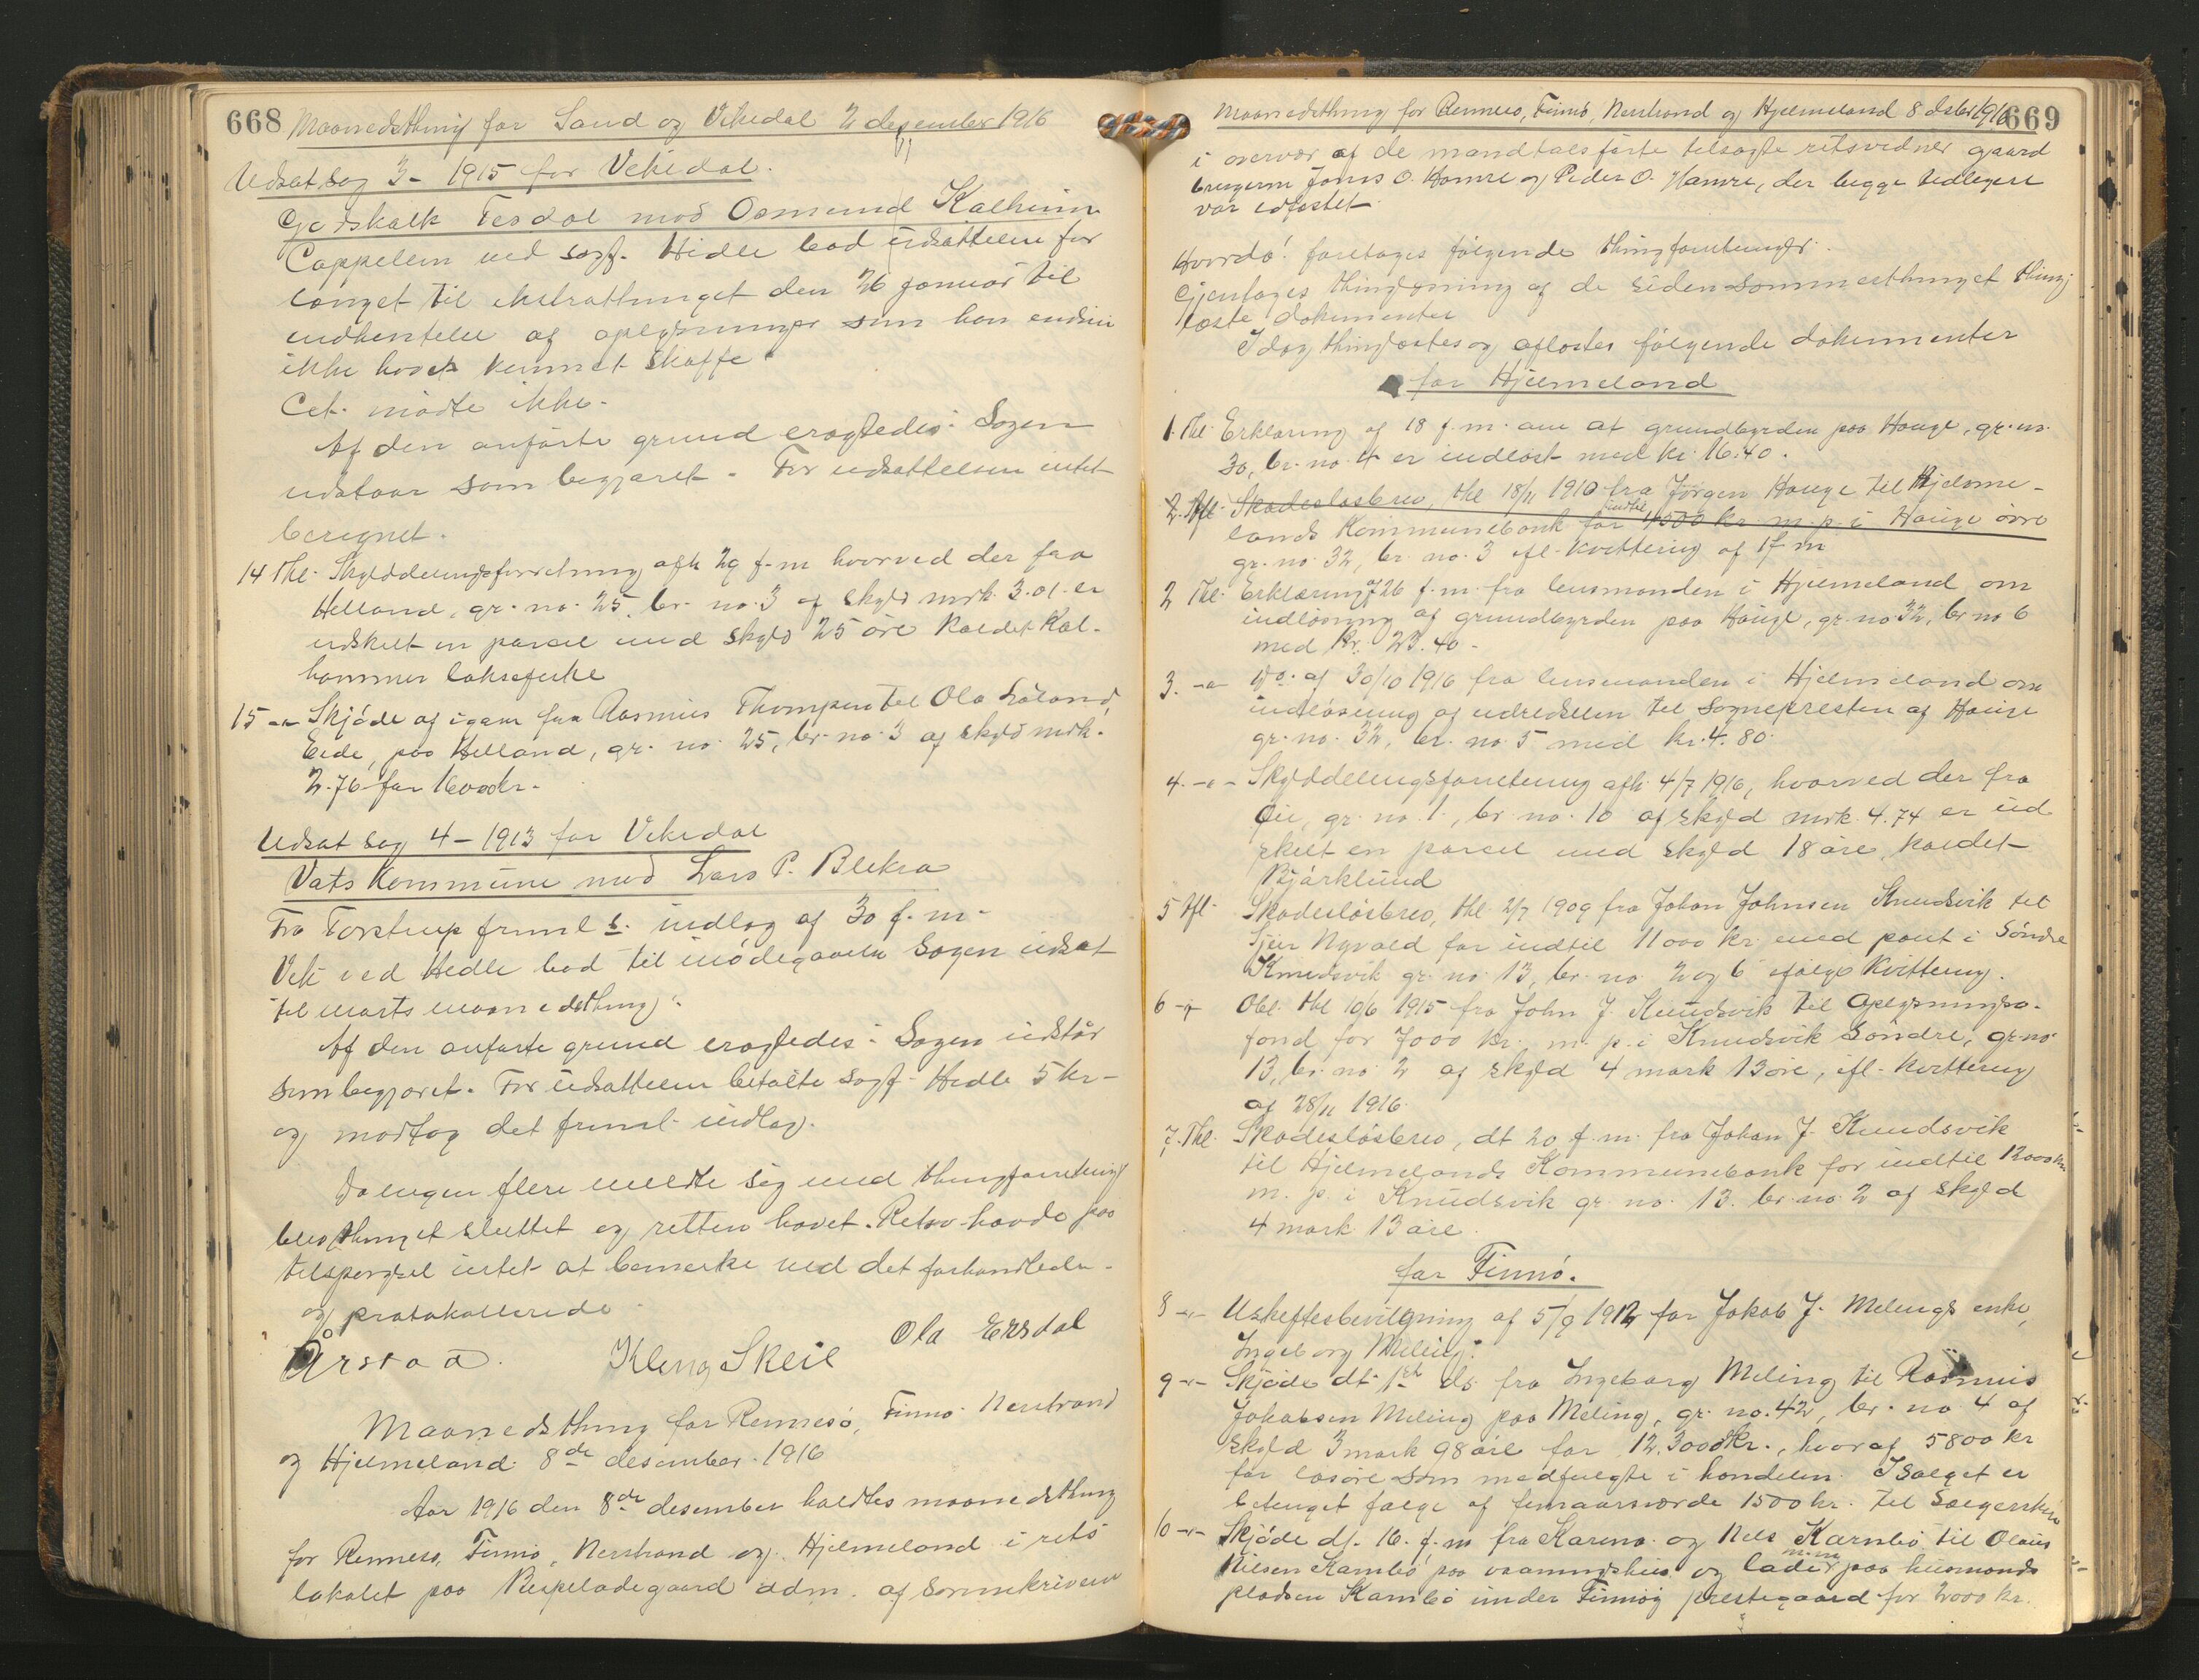 668 Maanedsthing for Sand og Vikedal 2 desember 1916
Udsat sag 3 - 1915 for Vikedal.
Godskalk Tesdal mod Osmund Kalheim
Cappelen ved sagf. Hidle bad udsættelse for
længet til ekstrathinget den 26 januar til
indhentelse af oplysninger som han endnu
ikke havde kunnet skaffe
Cit. mødte ikke.
Af den anførte grund eragtedes: Sagen
udstaar som begjæret. For udsættelsen intet
beregnet.
14 Thl. Skylddelingsforretning afh 29 f.m. hvorved der fra
Helland, gr. no. 25, br. no. 3 af skyld mrk. 3.01 er
udskilt en parcel med skyld 25 øre kaldet Kal-
hammer laksefiske
15 -"- Skjøde af igaar fra Rasmus Thompsen til Ola Løland,
Eide, paa Helland, gr. no. 25, br. no. 3 af skyld mrk.
2.76 for 1600 kr.
Udsat sag 4 - 1913 for Vikedal
Vats Kommune mod Lars P. Blikra
Fra Torstrup freml. s. indlæg af 30 f.m.
Vik ved Hidle bad til imødegaaelse sagen udsat
til marts maanedsthing.
Af den anførte grund eragtedes: Sagen udstår
som begjæret. For udsættelsen betalte sagf. Hidle 5 kr.
og modtog det freml. indlæg.
Da ingen flere meldte sig med thingforretning
blev thinget sluttet og retten hævet. Retsv. havde paa
tilspørgsel intet at bemerke ved det forhandlede
og protokollerede
Årstad. Kleng Skeie Ola Ersdal
Maanedsthing for Rennesø, Finnø, Nerstrand
og Hjelmeland 8de desember 1916
Aar 1916 den 8de desember holdtes maanedsthing
for Rennesø, Finnø, Nerstrand og Hjelmeland i rets
lokalet paa Bispeladegaard adm. af sorenskriveren
Maanedsthing for Rennesø, Finnø, Nerstrand og Hjelmeland 8 dsbr 1916 669
i overvær af de mandtalsførte tilsagte retsvidner gaard
brugerne Jonas O. Hamre og Peder O. Hamre, der begge tidligere
var edfæstet.
Hvorda! foretages følgende thingforretninger:
Gjentages thinglysning af de siden sommerthinget thing
læste dokumenter
Idag thinglæstes og aflæstes følgende dokumenter
for Hjelmeland
1. Thl. Erklæring af 18 f.m. om at grundbyrden paa Hauge, gr. no.
30, br. no. 4 er indløst med kr. 16.40.
2. Afl. Skadesløsbrev, thl 18/11 1910 fra Jørgen Hauge til Hjelme-
lands Kommunebank for indtil 4500 kr m. p. i Hauge øvre
gr. no. 32, br. no. 3 ifl. kvittering af 1 f m
2 Thl. Erklæring af 26 f.m. fra lensmanden i Hjelmeland om
indløsning af grundbyrden paa Hauge, gr. no. 32, br no 6
med kr. 23.40.
3. -"- Do. af 30/10 1916 fra lensmanden i Hjelmeland om
indløsning af udredselen til sognepresten af Hauge
gr. no. 32, br. no. 5 med kr. 4.80.
4. -"- Skylddelingsforretning afh. 4/7 1916, hvorved der fra
Øie, gr. no. 1, br no. 10 af skyld mrk. 4.74 er ud
skilt en parcel med skyld 18 øre, kaldet
Bjørklund
5 Afl. Skadesløsbrev, thl. 2/7 1909 fra Johan Johnsen Knudsvik til
Sjur Nyvold for indtil 11000 kr. med pant i Søndre
Knudsvik gr. no. 13, br. no. 2 og 6 ifølge kvittering.
6 -"- Obl. thl 10/6 1915 fra John J. Knudsvik til Oplysnings-
fond for 7000 kr. m. p. i Knudsvik Søndre, gr. no.
13, br. no. 2 af skyld 4 mark 13 øre, ifl. kvittering
af 28/11 1916.
7. Thl. Skadesløsbrev, dt 20 f.m. fra Johan J. Knudsvik
til Hjelmelands Kommunebank for indtil 12000 kr
m. p. i Knudsvik gr. no. 13. br. no. 2 af skyld
4 mark 13 øre.
for Finnø.
8 -"- Uskiftesbevilgning af 5/9 1912 for Jakob J. Melings enke,
Ingeborg Meling.
9 -"- Skjøde dt. 1ste ds. fra Ingeborg Meling til Rasmus
Jakobsen Meling paa Meling, gr. no. 42, br. no 4 af
skyld 3 mark 98 øre for 12.300 kr., hvoraf 5800 kr
for løsøre som medfulgte i handelen. I salget er
betinget følge af femaarsværde 1500 kr. til sælgersken
10 -"- Skjøde dt. 16. f.m fra Karena og Nels Kambø til Olaus
Nilsen Kambø paa vaaningshus og lade m.m. paa husmands
pladsen Kambø under Finnøy prestegaard for 2000 kr.